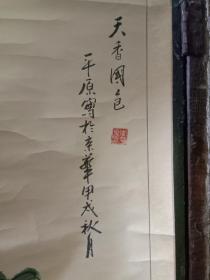 天香國色
平原寫於京華甲戌秋月